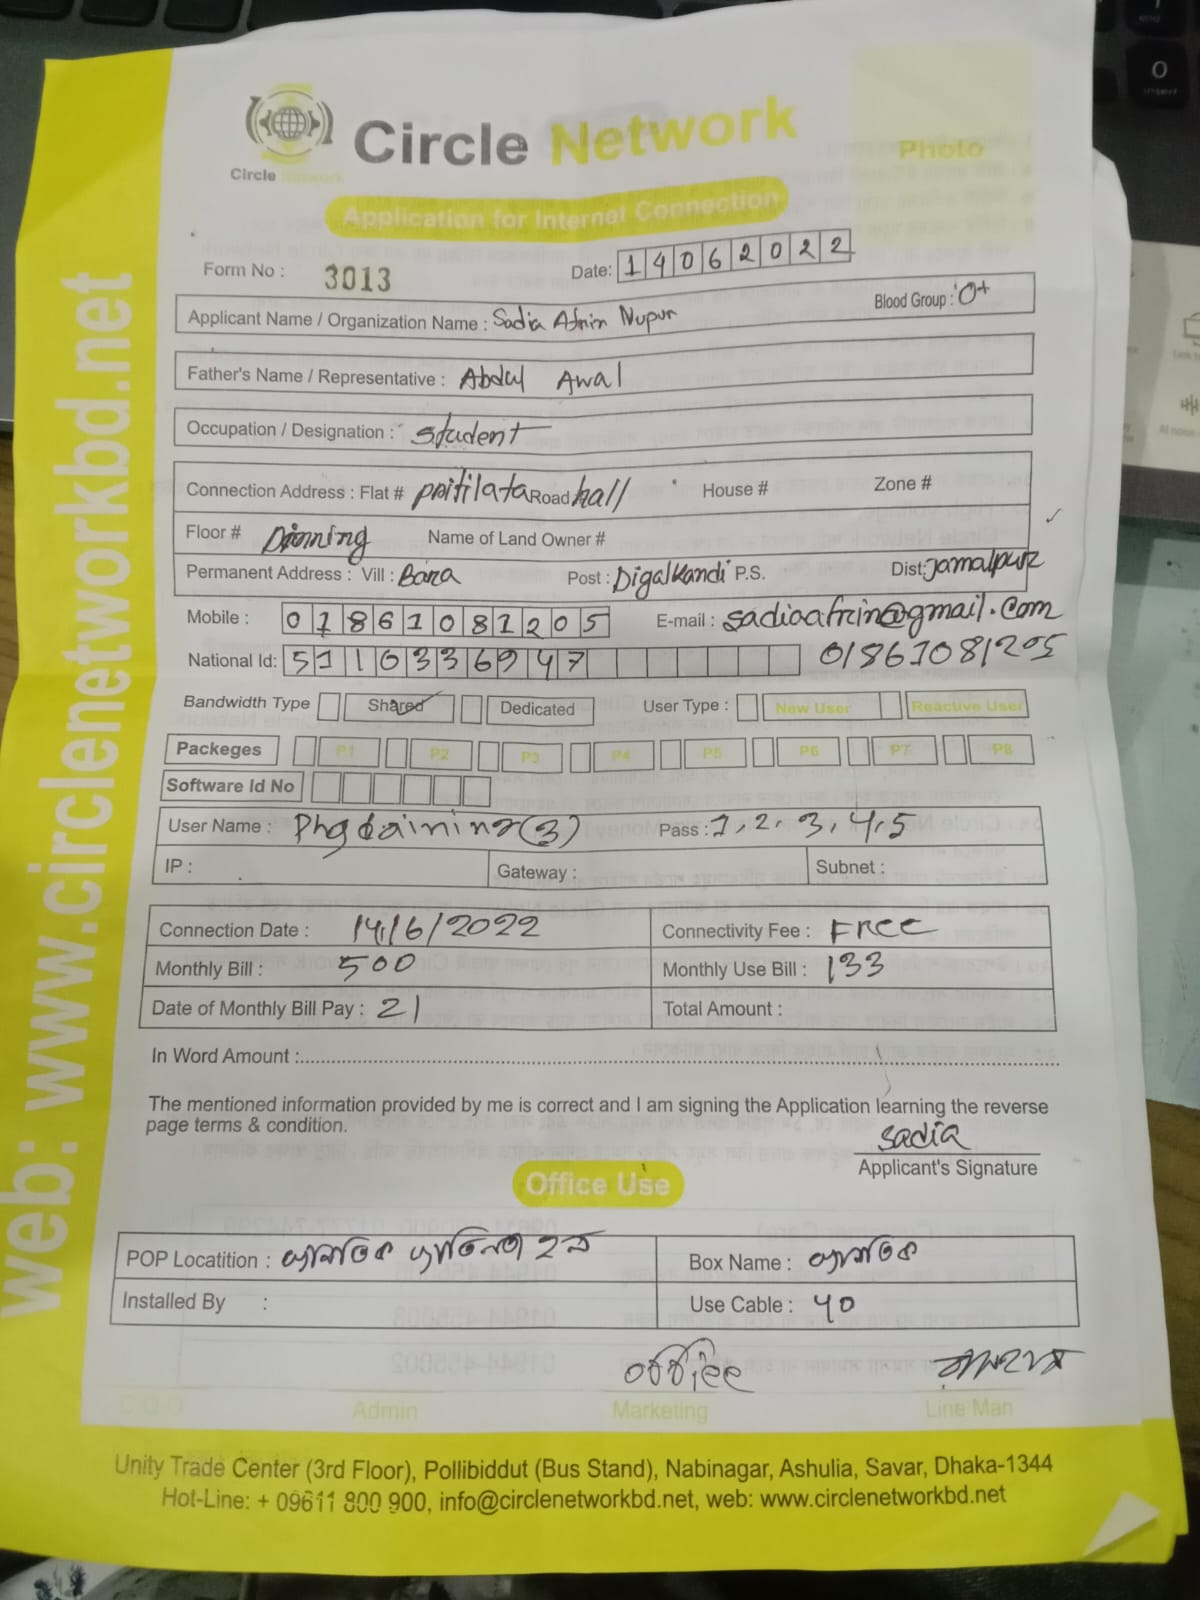 Circle Network
Circle Network
Photo
Application for Internet Connection
Form No : 3013
Date: 14062022
Blood Group : O+
Applicant Name / Organization Name : Sadia Afrin Nupur
Father's Name / Representative : Abdul Awal
Occupation / Designation : Student
Connection Address : Flat # pritilata Road hall House # Zone #
Floor # Dinning Name of Land Owner #
Permanent Address : Vill : Bara Post : Digalkandi P.S. Dist: Jamalpur
Mobile : 01861081205 E-mail : sadiaafrin@gmail.com
National Id: 5110336947 01861081205
Bandwidth Type Shared Dedicated User Type : New User Reactive User
Packeges P1 P2 P3 P4 P5 P6 P7 P8
Software Id No
User Name : Phgdaining(3) Pass : 1,2,3,4,5
IP : Gateway : Subnet :
Connection Date : 14/6/2022 Connectivity Fee : Free
Monthly Bill : 500 Monthly Use Bill : 133
Date of Monthly Bill Pay : 21 Total Amount :
In Word Amount :
The mentioned information provided by me is correct and I am signing the Application learning the reverse
page terms & condition.
Sadia
Applicant's Signature
Office Use
POP Locatition : প্রীতিলতা হল
Box Name :
Installed By :
Use Cable : 40
C.O.O Admin Marketing Line Man
Unity Trade Center (3rd Floor), Pollibiddut (Bus Stand), Nabinagar, Ashulia, Savar, Dhaka-1344
Hot-Line: + 09611 800 900, info@circlenetworkbd.net, web: www.circlenetworkbd.net
web: www.circlenetworkbd.net